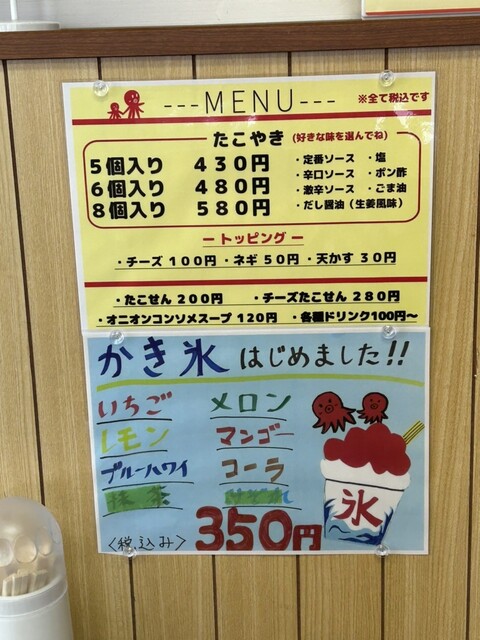 ---MENU---
※全て税込です
たこやき (好きな味を選んでね)
5個入り 430円
6個入り 480円
8個入り 580円
・定番ソース ・塩
・辛口ソース ・ポン酢
・激辛ソース ・ごま油
・だし醤油（生姜風味）
ートッピングー
・チーズ100円・ネギ50円・天かす30円
・たこせん200円 ・チーズたこせん280円
・オニオンコンソメスープ120円 ・各種ドリンク100円～
かき氷 はじめました!!
いちご メロン
レモン マンゴー
ブルーハワイ コーラ
抹茶
氷
<税込み> 350円